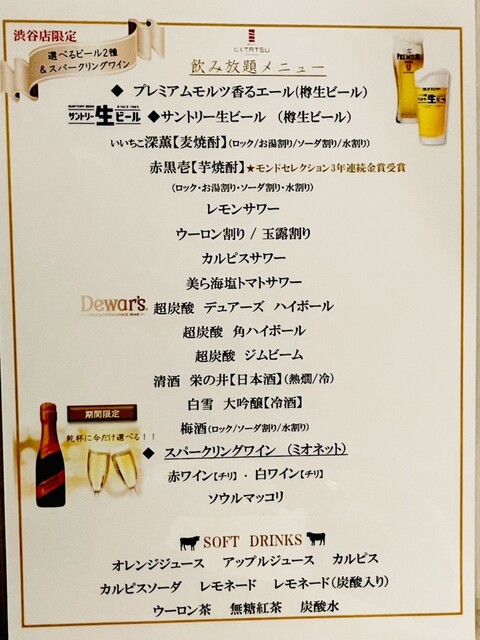 渋谷店限定
選べるビール2種
&スパークリングワイン
飲み放題メニュー
◆ プレミアムモルツ香るエール(樽生ビール)
サントリー生ビール ◆サントリー生ビール (樽生ビール)
いいちこ深薫【麦焼酎】(ロック/お湯割り/ソーダ割り/水割り)
赤黒壱【芋焼酎】★モンドセレクション3年連続金賞受賞
(ロック・お湯割り・ソーダ割り・水割り)
レモンサワー
ウーロン割り / 玉露割り
カルピスサワー
美ら海塩トマトサワー
Dewar's 超炭酸 デュアーズ ハイボール
超炭酸 角ハイボール
超炭酸 ジムビーム
清酒 栄の井【日本酒】(熱燗/冷)
白雪 大吟醸【冷酒】
期間限定
梅酒(ロック/ソーダ割り/水割り)
乾杯に今だけ選べる!!
◆ スパークリングワイン (ミオネット)
赤ワイン【チリ】・白ワイン【チリ】
ソウルマッコリ
SOFT DRINKS
オレンジジュース アップルジュース カルピス
カルピスソーダ レモネード レモネード(炭酸入り)
ウーロン茶 無糖紅茶 炭酸水